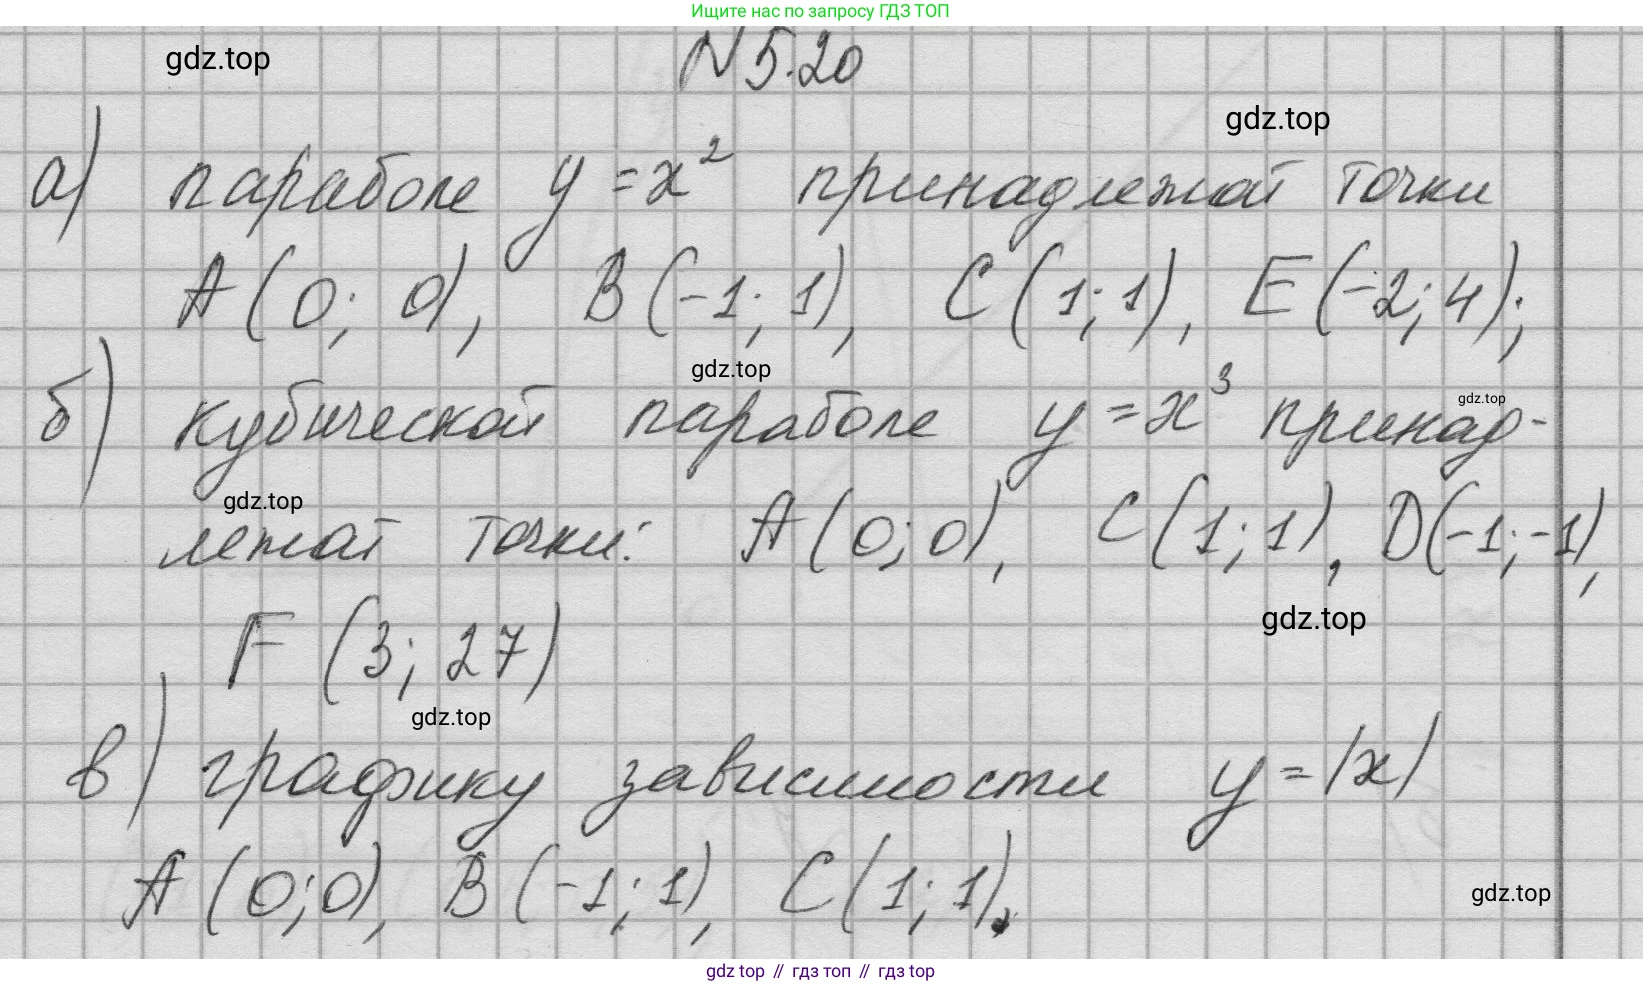 Ищите нас по запросу ГДЗ ТОП
N 5.20
gdz.top
gdz.top
а) параболе y = x² принадлежат точки
A (0; 0), B (-1; 1), C (1; 1), E (-2; 4);
gdz.top
б) кубической параболе y = x³ принад-
gdz.top
gdz.top
лежат точки: A (0; 0), C (1; 1), D (-1; -1),
F (3; 27)
gdz.top
gdz.top
в) графику зависимости y = |x|
A (0; 0), B (-1; 1), C (1; 1).
gdz.top
gdz top // гдз топ // гдз top